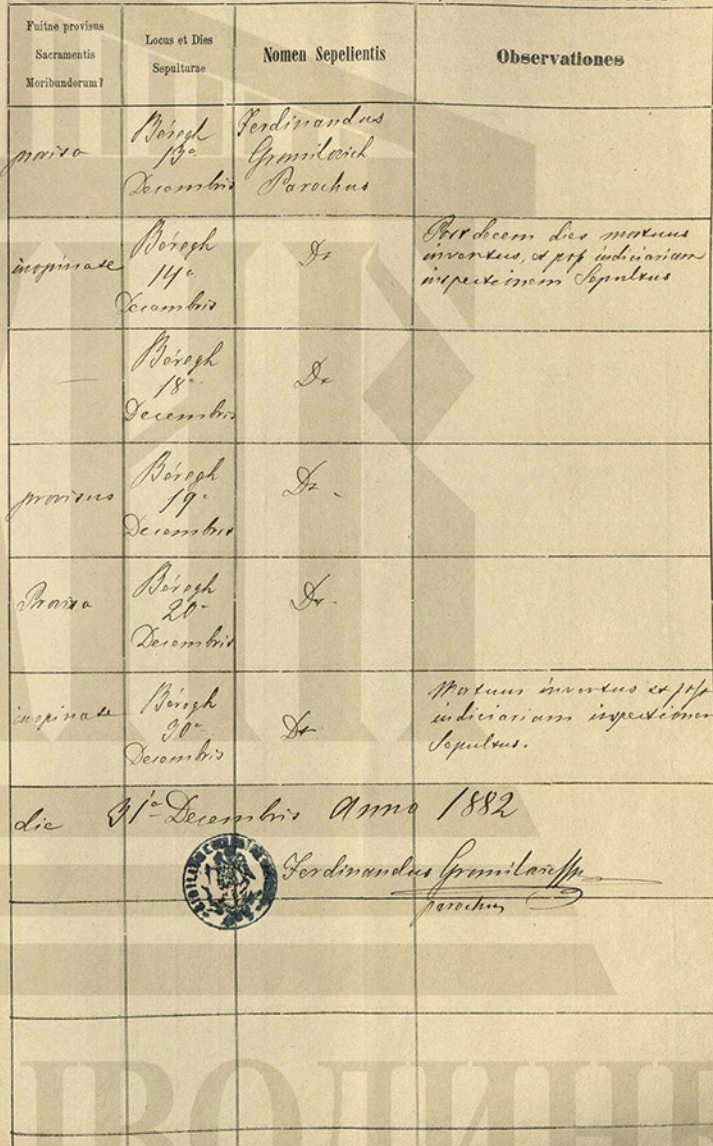 Fuitne provisus
Sacramentis
Moribundorum?
Locus et Dies
Sepulturae
Nomen Sepelientis
Observationes
provisa
Béregh
13a
Decembris
Ferdinandus
Gromilovich
Parochus
inopinate
Béregh
14a
Decembris
Dt
Post decem dies mortuus
inventus, et post iudiciariam
inspectionem Sepultus
—
Béregh
18a
Decembris
Dt
provisus
Béregh
19a
Decembris
Dt
Provisa
Béregh
20a
Decembris
Dt
inopinate
Béregh
30a
Decembris
Dt
Mortuus inventus et post
iudiciariam inspectionem
Sepultus.
die 31a Decembris Anno 1882
Ferdinandus Gromilovich
parochus